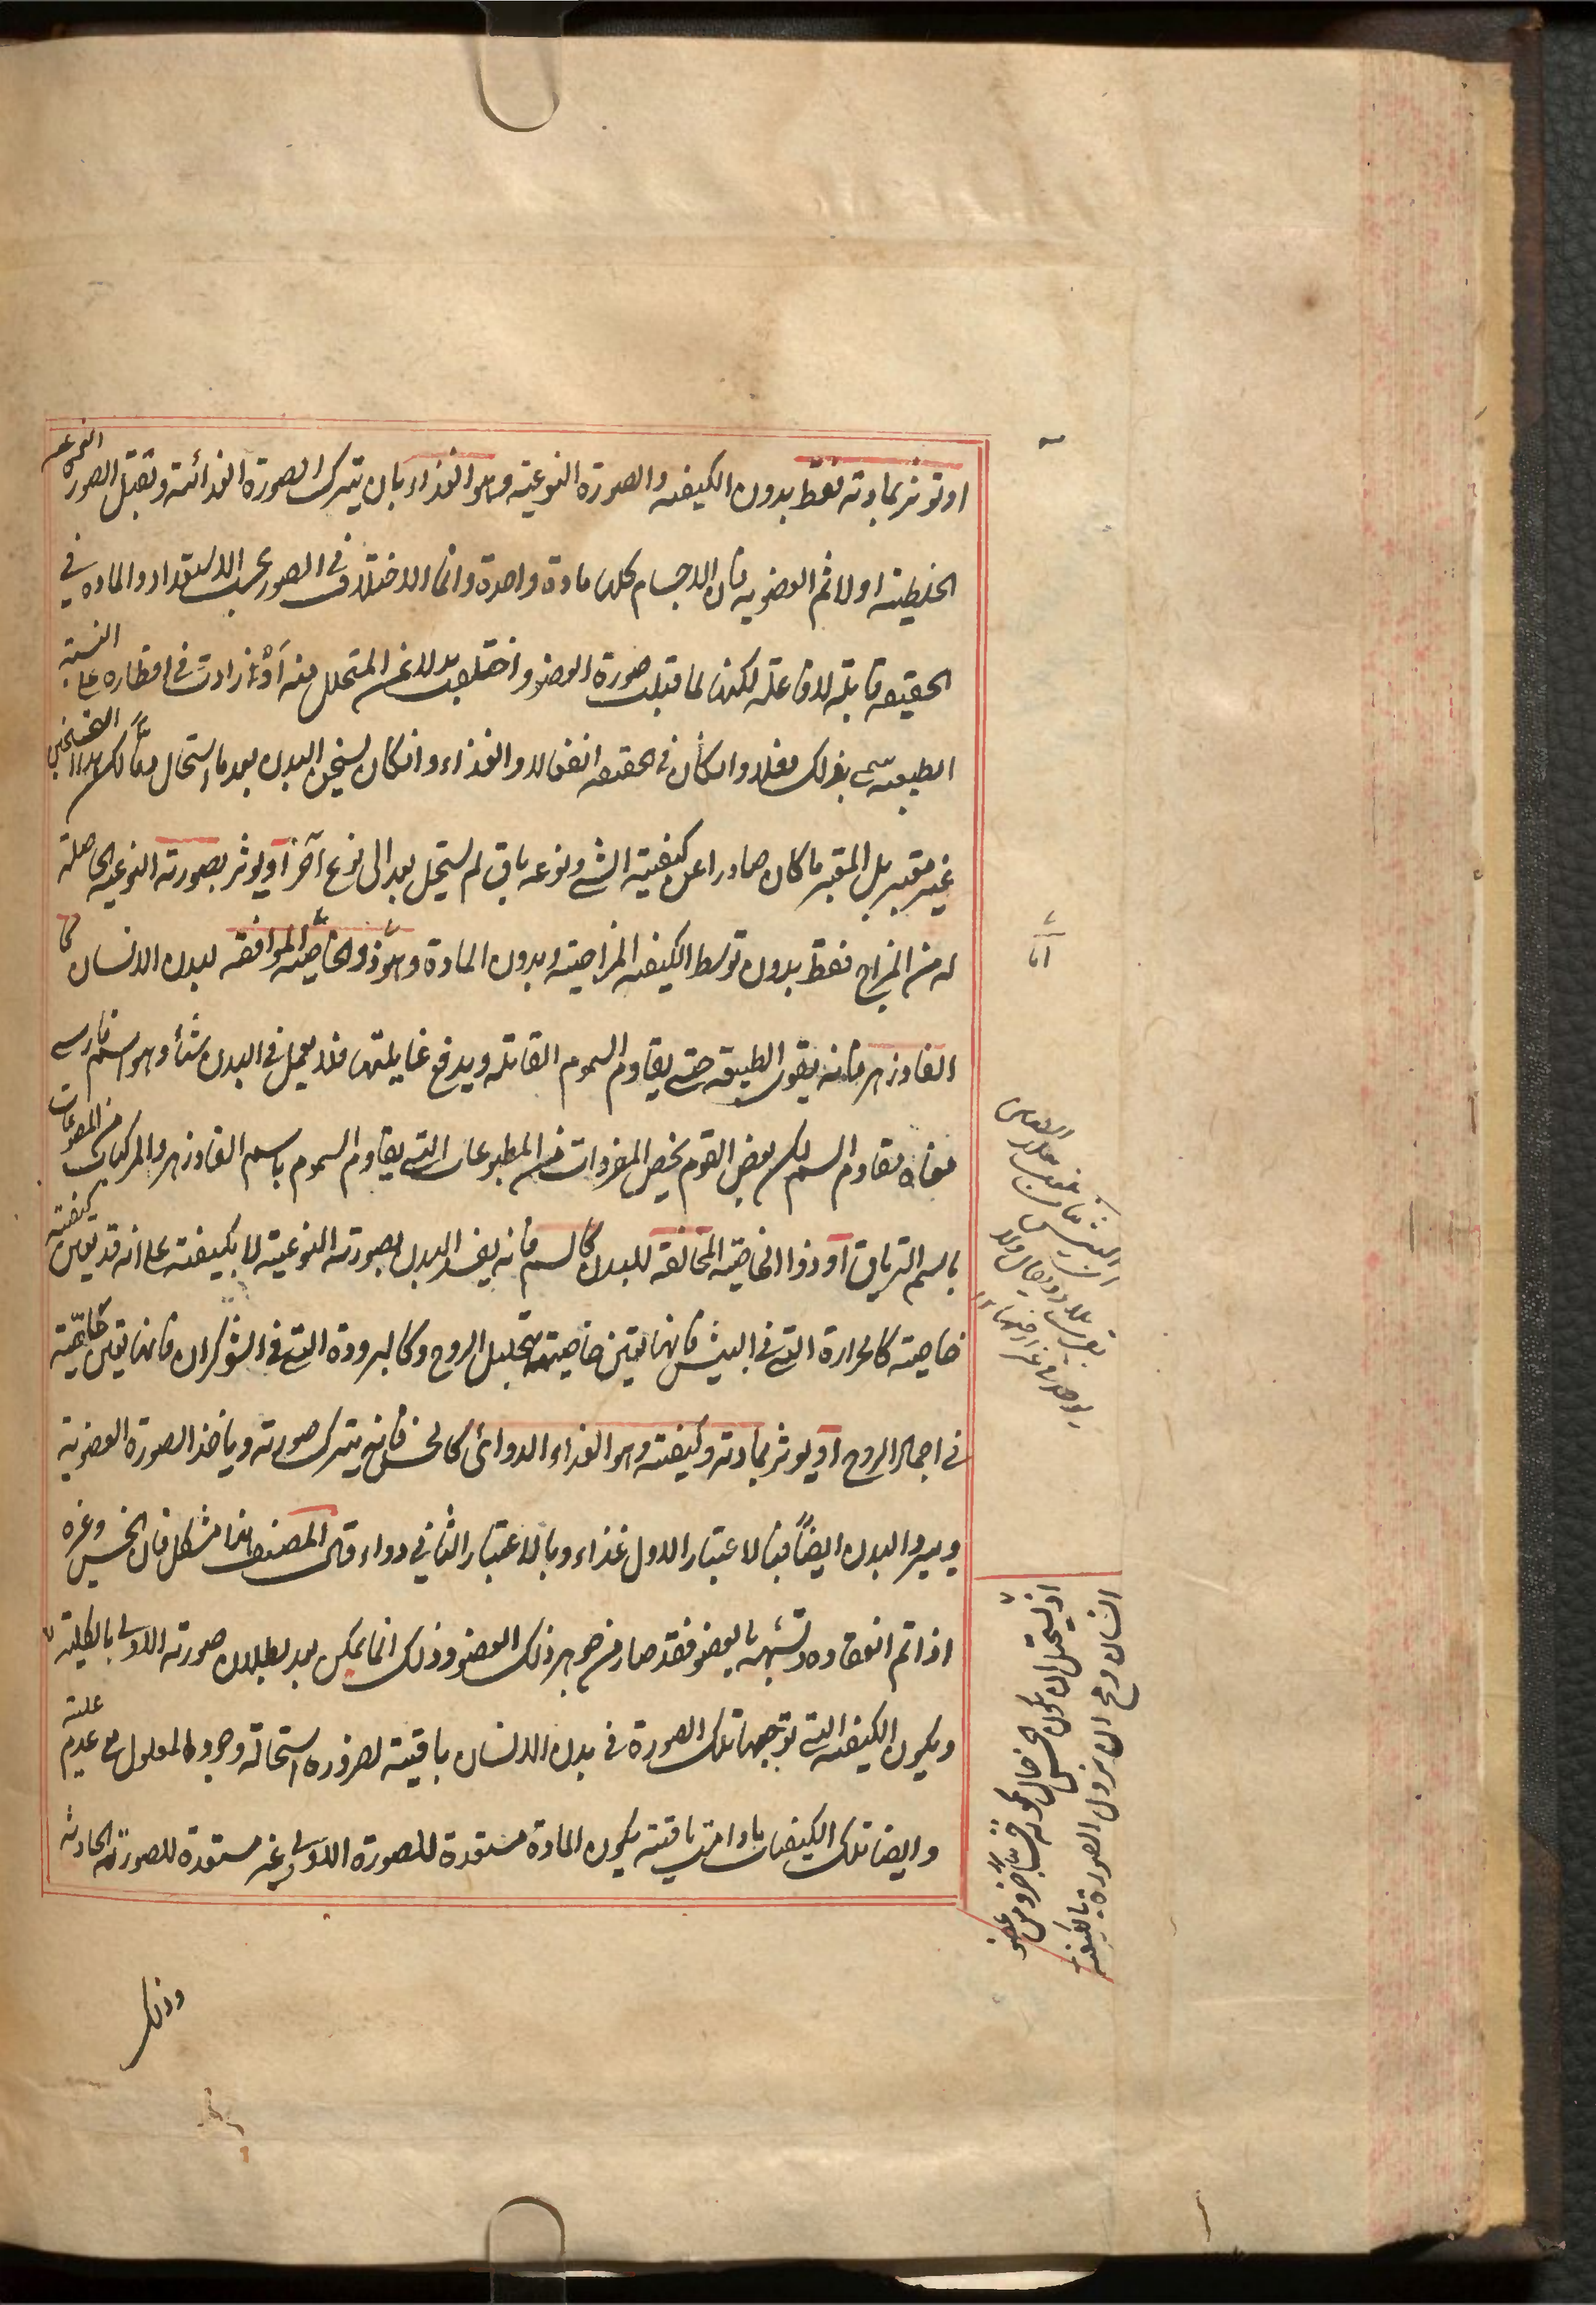 او تؤثر بمادته فقط بدون الكيفيه والصورة النوعيته وهو الغذاء بان يترك الصورة الغذائية وتقبل الصور النوعيه
الخلطيته اولا ثم العضويه فان الاجسام كلها مادة واحدة وانما الاختلاف في الصور بحسب الاستعداد والماده في
الحقيقه قابلة لا فاعلة لكنها لما قبلت صورة العضو واختلفت بدلا عن المتحلل منه أو زادت في اقطاره على النسبة
الطبيعيه سمى بذلك فعلا وان كان في الحقيقه انفعالا والغذاء وان كان يسخن البدن بعد ما استحال دما لكن هذا التسخين
غير معتبر بل المعتبر ما كان صادرا عن كيفيته الشي ونوعه باق لم يستحيل بعد الى نوع آخر أو يوثر بصورته النوعيه الحاصلة
له من المزاج فقط بدون توسط الكيفيه المزاجيته وبدون المادة وهو ذو الخاصيته الموافقه لبدن الانسان كا
الفادزهر فانه يقوى الطبيعه حتى يقاوم السموم القاتله ويدفع غايلتها فلا يعمل في البدن شيأ وهو اسم فارسي
معناه مقاوم السم لكن بعض القوم يخص المفردات من المطبوعات التي يقاوم السموم باسم الفادزهر والمركبات من المصنوعات
باسم الترياق أو ذو الخاصيته المخالفة للبدن كالسم فانه يفسد البدن بصورته النوعيته لا بكيفيته على انه قد يعين كيفيته
خاصيته كالحرارة التي في البيش فانها تعين خاصيته بتحليل الروح وكالبرودة التي في الشوكران فانها تعين خاصيته
في اجماد الروح أو يوثر بمادته وكيفيته وهو الغذاء الدوائى كالخس فانه يترك صورته وياخذ الصورة العضوية
ويبرد البدن ايضاً فبالاعتبار الاول غذاء وبالاعتبار الثاني دواء وقال المصنف هذا مشكل فان الخس وغيره
اذا تم انعقاده وتشبهه بالعضو فقد صار من جوهر ذلك العضو وذلك انما يمكن بعد بطلان صورته الاولى بالكلية
ويكون الكيفيه التي توجبها تلك الصورة في بدن الانسان باقيته لضرورة استحالة وجود المعلول مع عدم علته
وايضا تلك الكيفيات ما دامت باقيته يكون المادة مستعدة للصورة الاولى غير مستعدة للصورة الحادثه
وذلك
اذ يستحيل ان يكون الخس حال كونه خسا جزء من عضو
انسان ومع ان يزول الصورة بالكليته